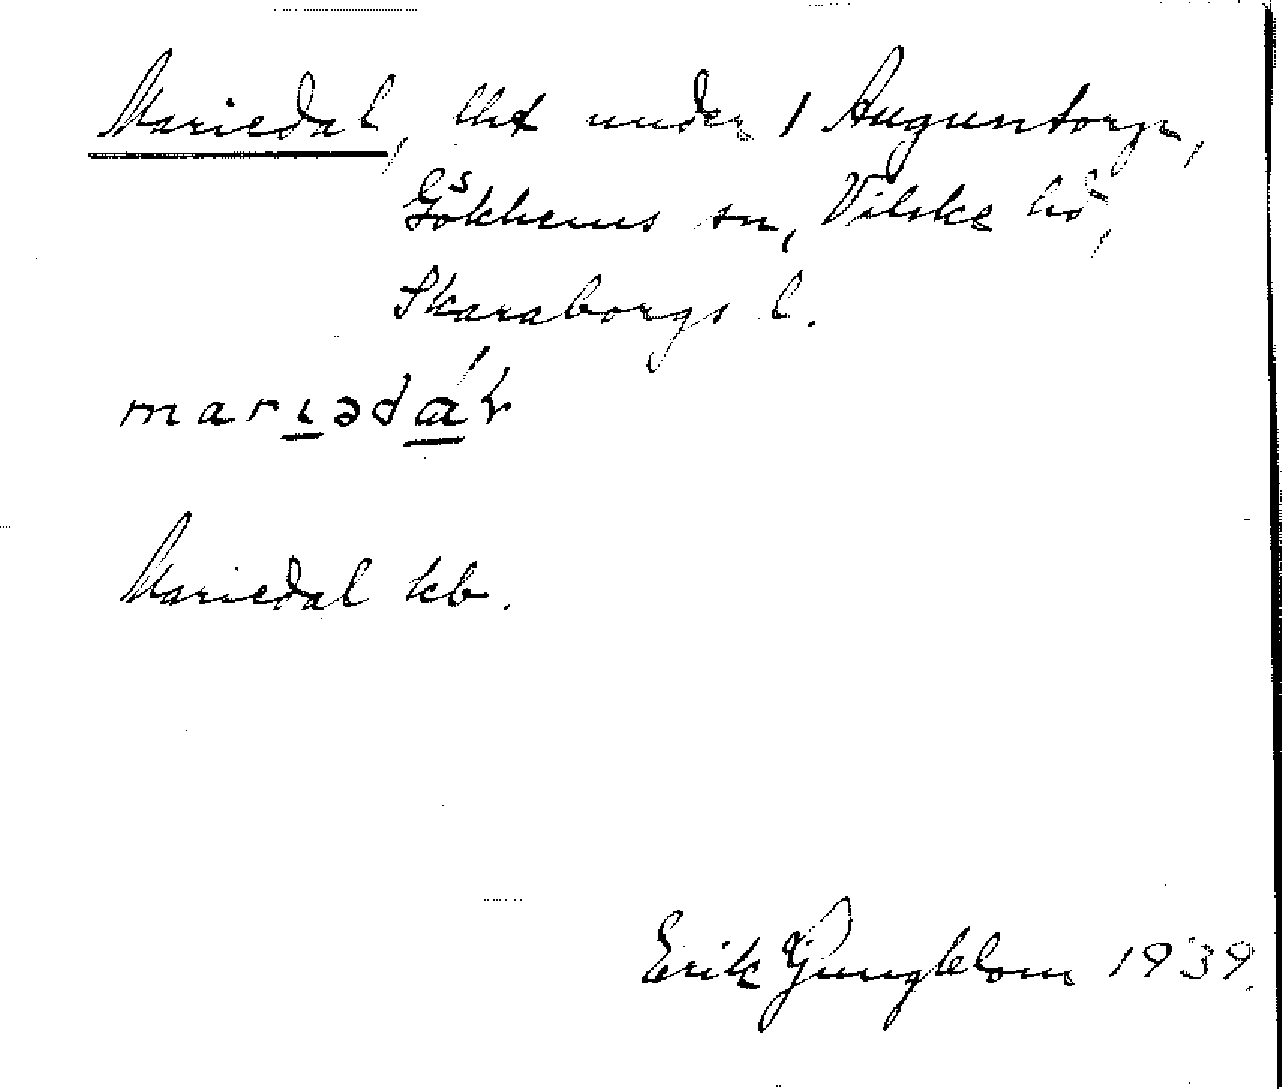 Mariedal, lht under 1 Agustorp,
Gökhems sn, Vilske hd,
Skaraborgs l.
marɩədál
Mariedal kb.
Erik Ljungblom 1939.